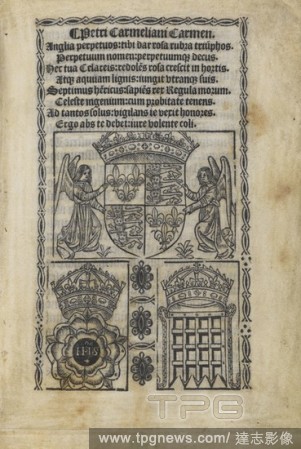 Petri Carmeliani Carmen.
Anglia perpetuos: tibi dat rosa rubra triūphos.
Perpetuum nomen: perpetuumq; decus.
Hec tua Celareis: redolēs rosa crescit in hortis.
Atq; aquiam lignis: iungit vtranq; suis
Septimus hēricus: sapiēs rex Regula morum.
Celeste ingenium: cum probitate tenens.
Ad tantos solus: vigilans te vexit honores.
Ergo abs te debet: iure volente coli.
TPG
www.tpgnews.com/達志影像